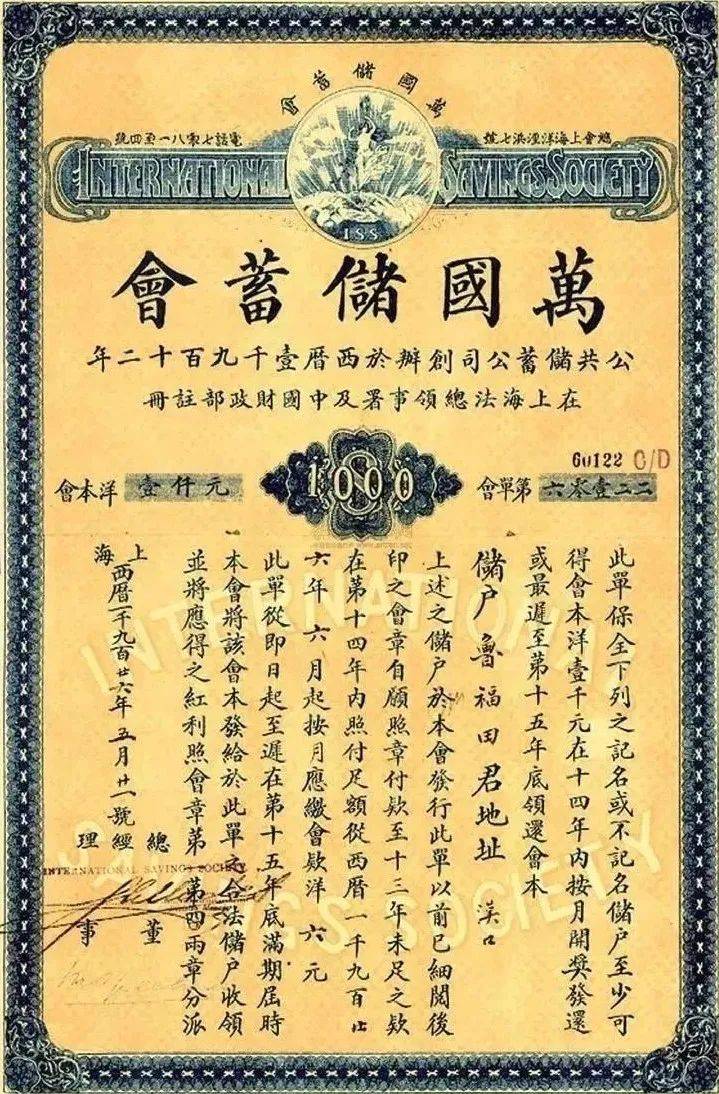 萬國儲蓄會
總會上海洋涇浜七號
電話七零八一至四號
INTERNATIONAL SAVINGS SOCIETY
ISS
萬國儲蓄會
公共儲蓄公司創辦於西曆壹千九百十二年
在上海法總領事署及中國財政部註冊
60122 C/D
會單第六零壹二二
1000
會本洋壹仟元
此單保全下列之記名或不記名儲戶至少可
得會本洋壹千元在十四年內按月開獎發還
或最遲至第十五年底領還會本
儲戶魯福田君地址 漢口
上述之儲戶於本會發行此單以前已細閱後
印之會章自願照章付款至十三年未足之款
在第十四年內照付足額從西曆一千九百廿
六年六月起按月應繳會款洋六元
此單從即日起至遲在第十五年底滿期屆時
本會將該會本發給於此單之合法儲戶收領
並將應得之紅利照會章第 第四兩章分派
上海
西曆一千九百廿六年五月廿一號
總經理
INTERNATIONAL SAVINGS SOCIETY
董事
INTERNATIONAL
SAVINGS SOCIETY